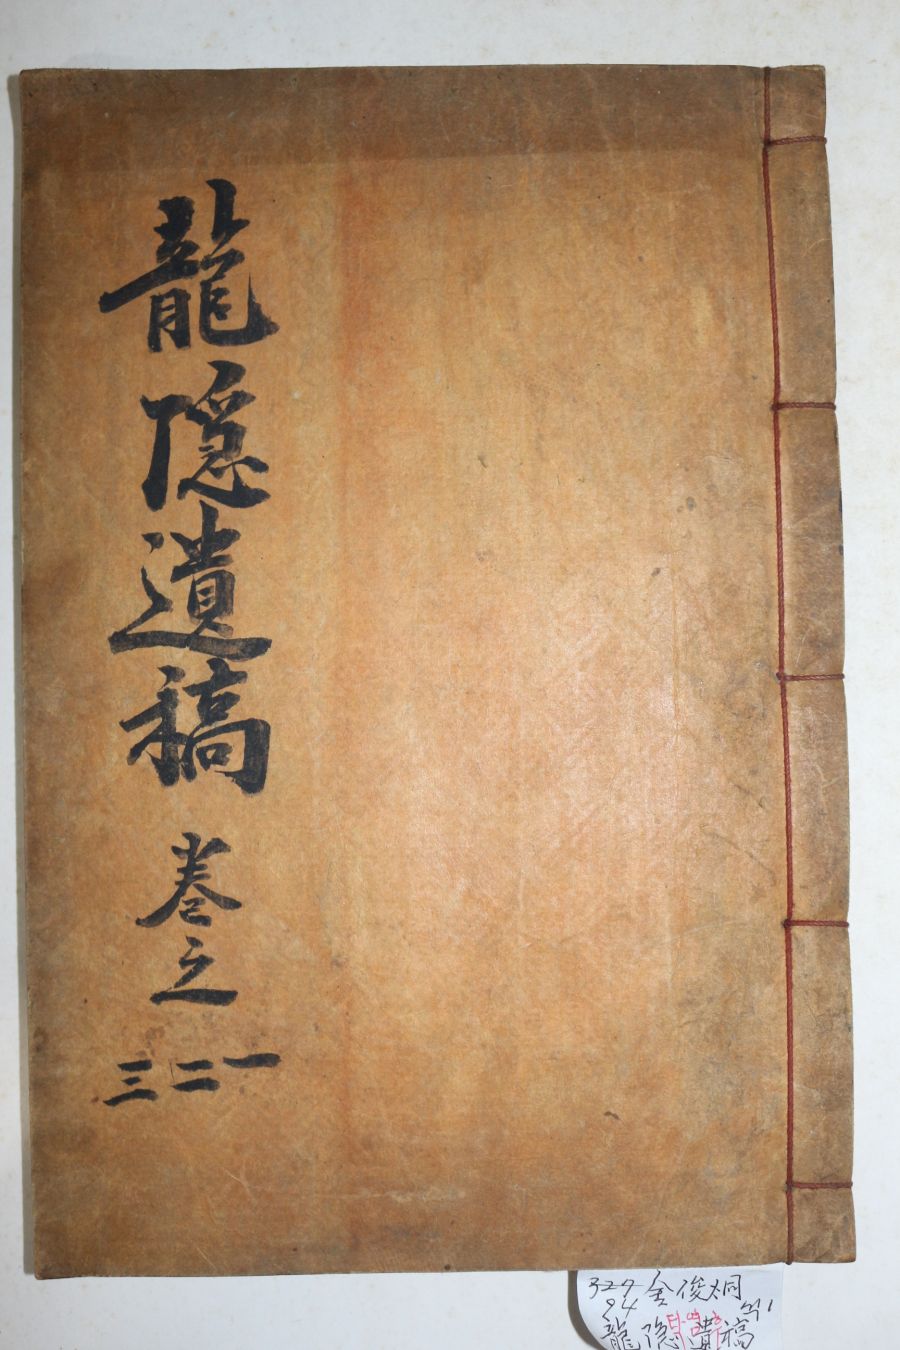 龍隱遺稿 卷之
一二三
327 金俊炯
94
龍隱遺稿